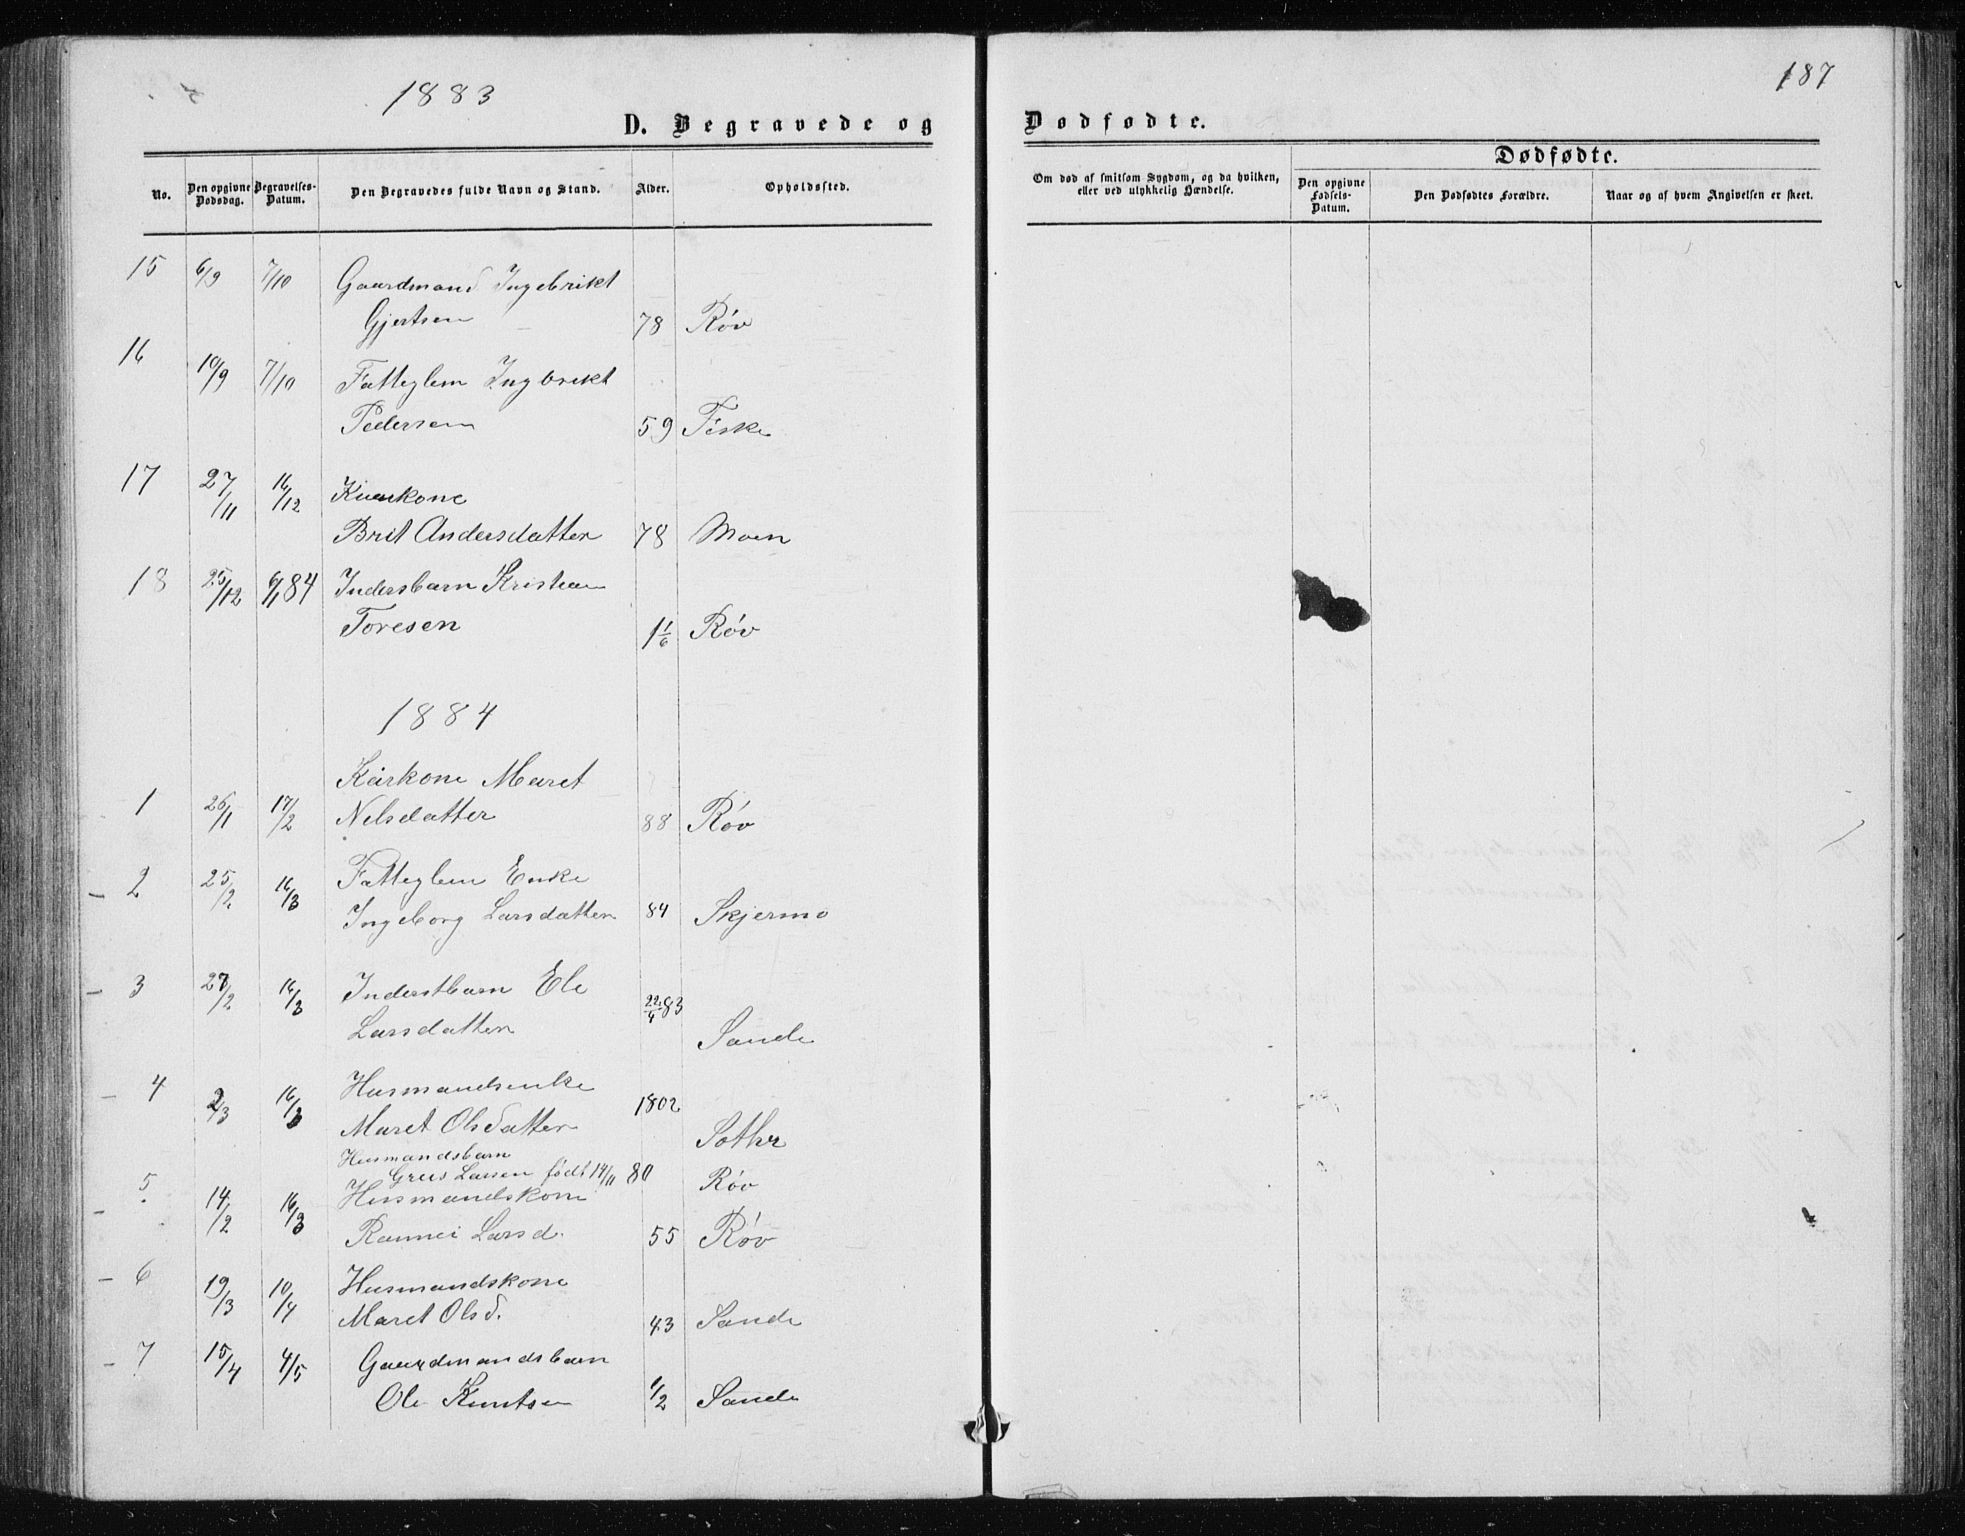 187
1883
D. Begravede og Dødfødte.
Dødfødte.
No.
Den opgivne Dødsdag.
Begravelses-Datum.
Den Begravedes fulde Navn og Stand.
Alder.
Opholdssted.
Om død af smitsom Sygdom, og da hvilken, eller ved ulykkelig Hændelse.
Den opgivne Fødsels-Datum.
Den Dødfødtes Forældre.
Naar og af hvem Angivelsen er skeet.
15 6/9 7/10 Gaardmand Ingebrikt
Gjertsen 78 Røv
16 10/9 7/10 Fatteglem Ingbrikt
Pedersen 59 Fiske
17 27/11 16/12 Kaarkone
Brit Andersdatter 78 Moen
18 25/12 6/1 84 Indersbarn Kristian
Toresen 1 1/6 Røv
1884
Kårkone Maret
1 26/1 17/2 Nelsdatter 88 Røv
2 25/2 16/3 Fatteglem Enke
Ingeborg Larsdatter 84 Skjermo
3 27/2 16/3 Inderstbarn Ele
Larsdatter 22/4 83 Sande
4 2/3 16/3 Husmandsenke
Maret Olsdatter 1802 Sothr
Husmandsbarn
Lassen født 14/11 80 Røv
5 14/2 16/3 Husmandskone
Rannei Larsd. 55 Røv
6 19/3 10/4 Husmandskone
Maret Olsd. 43 Sande
7 15/4 4/5 Gaardmandsbarn
Ole Knutsen 1/2 Sande